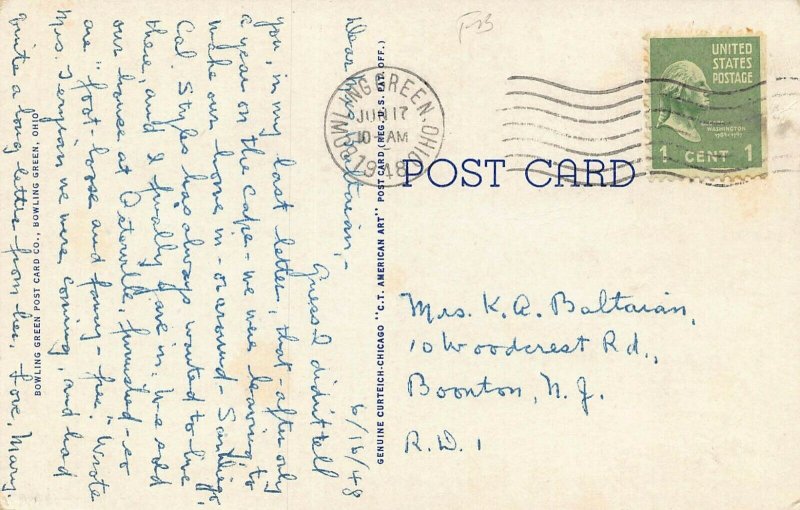 6/16/48
Dear Mrs. Baltaian,—
Guess I didn't tell
you, in my last letter, that - after only
a year on the Cape - we were leaving to
make our home in - or around - San Diego,
Cal. Styles has always wanted to live
there, and I finally gave in. We sold
our house at Osterville, furnished - so
are "foot-loose and fancy-free." Wrote
Mrs. we were coming, and had
quite a long letter from her. Love, Mary.
BOWLING GREEN POST CARD CO., BOWLING GREEN, OHIO
GENUINE CURTEICH-CHICAGO "C.T. AMERICAN ART" POST CARD (REG. U.S. PAT. OFF.)
BOWLING GREEN, OHIO
JUN 17
10-AM
1948
UNITED
STATES
POSTAGE
WASHINGTON
1 CENT 1
POST CARD
Mrs. K. A. Baltaian,
10 Woodcrest Rd.,
Boonton, N. J.
R.D. 1